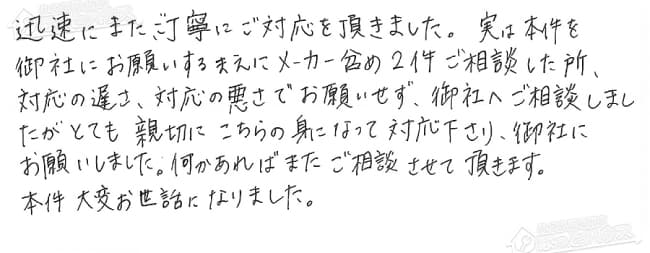 迅速にまたご丁寧にご対応を頂きました。実は本件を
御社にお願いするまえにメーカー含め2件ご相談した所、
対応の遅さ、対応の悪さでお願いせず、御社へご相談しまし
たがとても親切にこちらの身になって対応下さり、御社に
お願いしました。何かあればまたご相談させて頂きます。
本件大変お世話になりました。